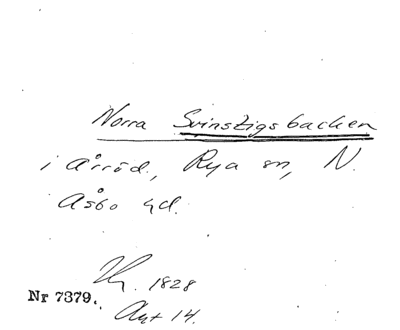 Norra Svinstigsbacken
i Årröd, Rya sn, N.
Åsbo hd.
1828
Nr 7379.
Akt 14.